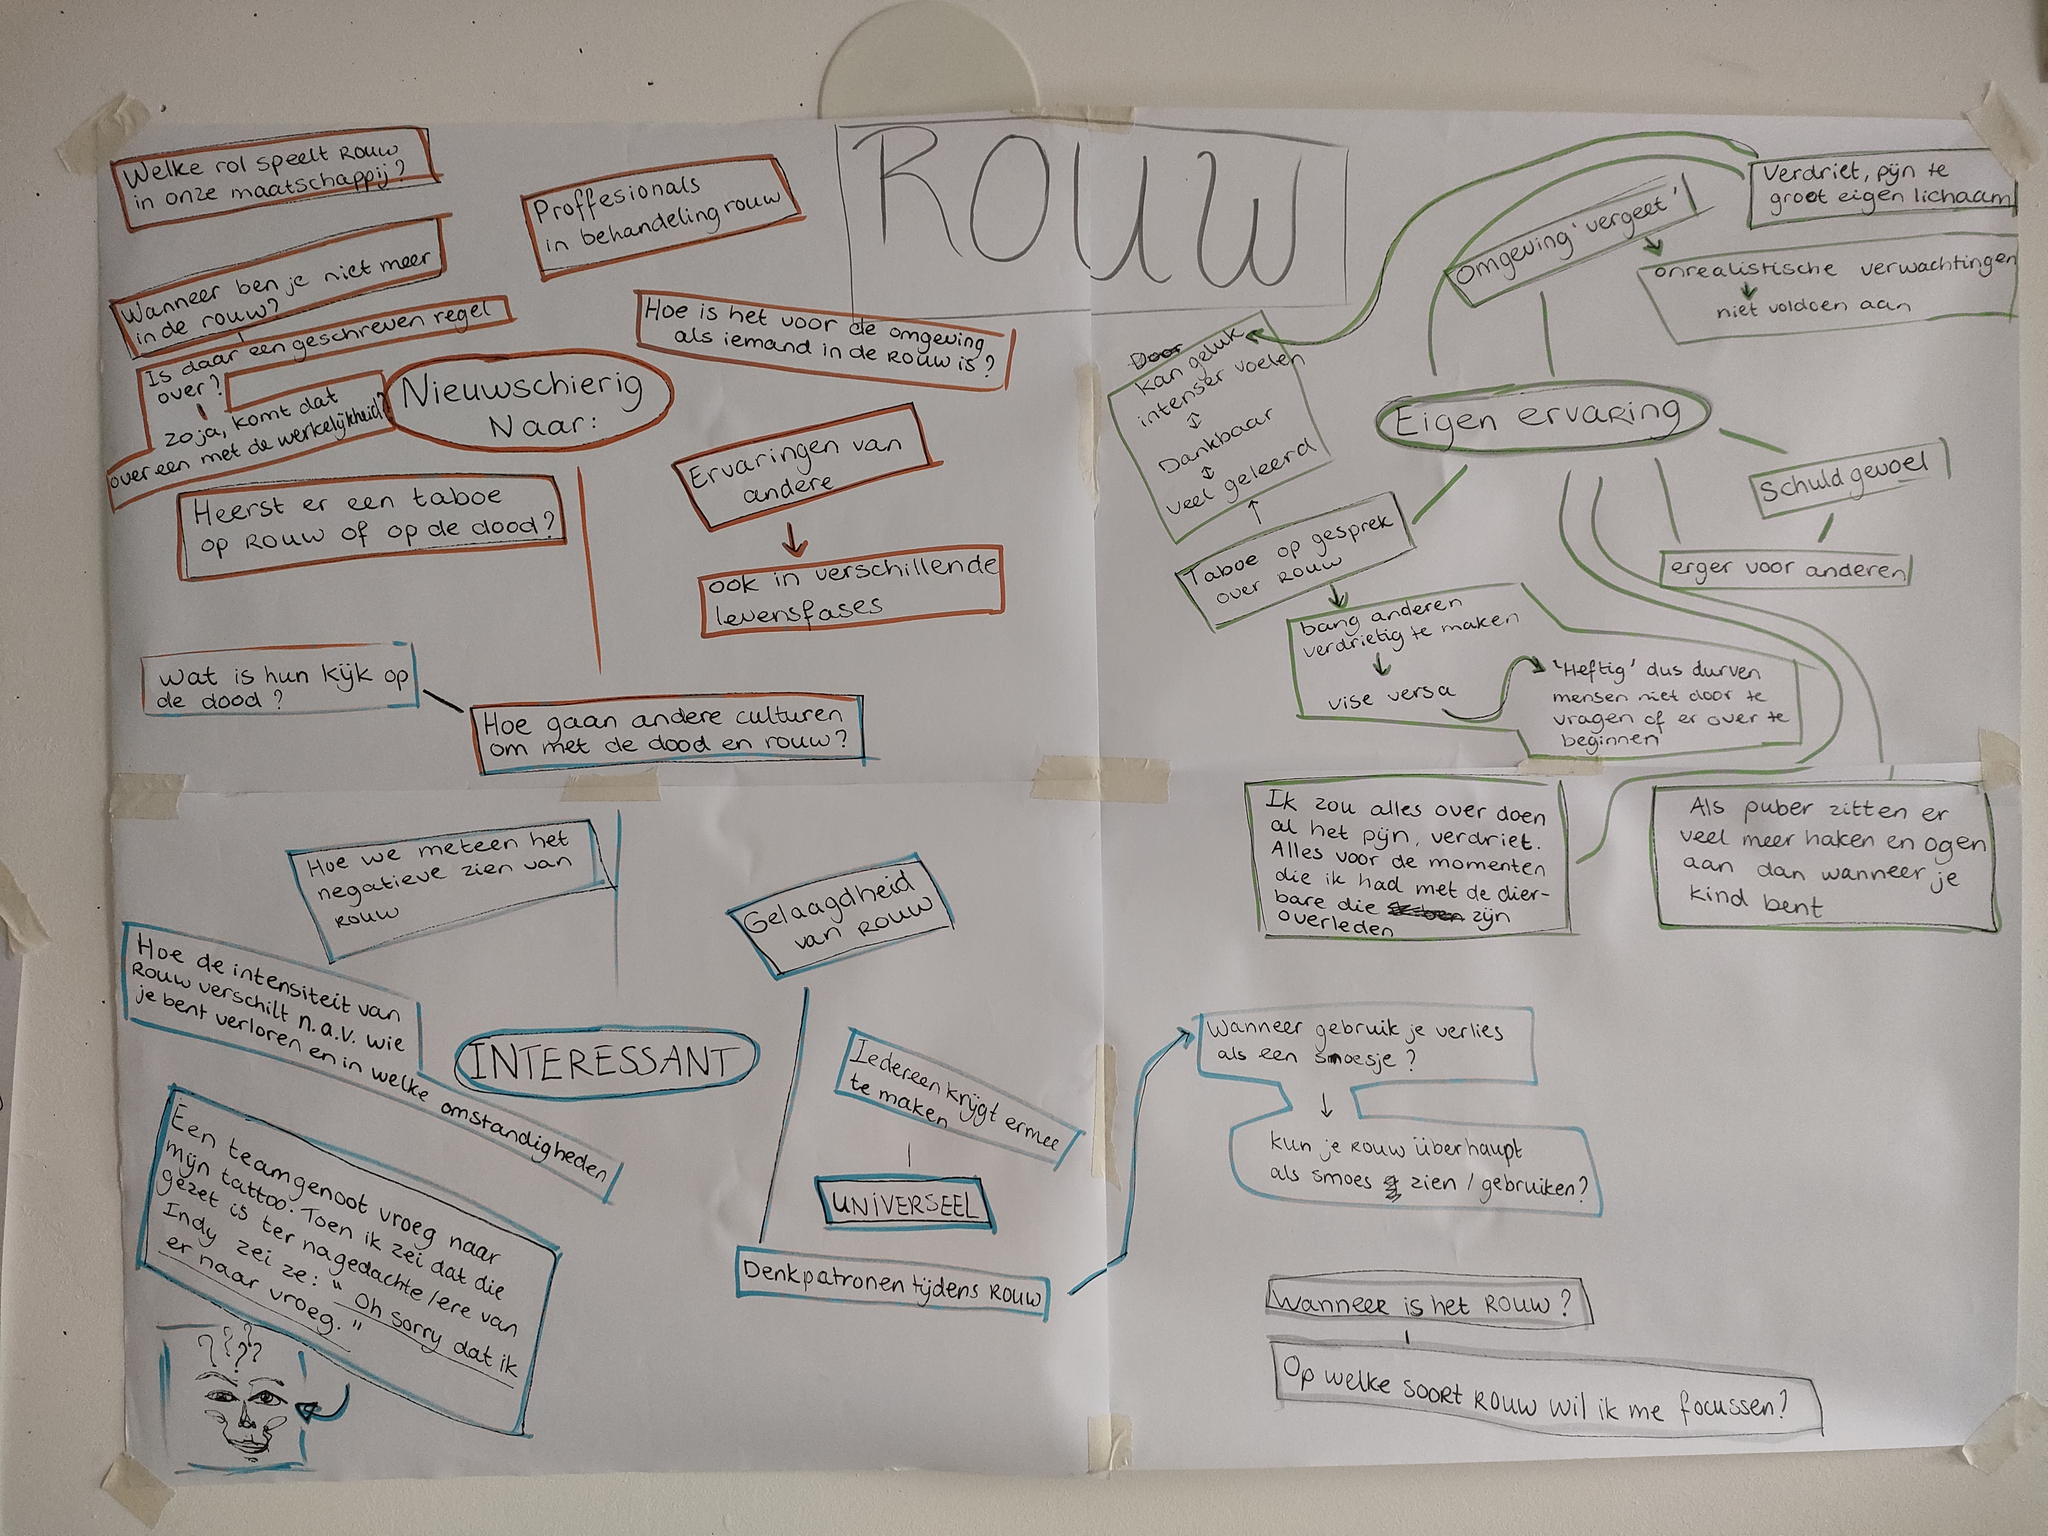 ROUW
Welke rol speelt ROUW
in onze maatschappij?
Proffesionals
in behandeling rouw
Wanneer ben je niet meer
in de rouw?
Is daar een geschreven regel
over?
zo ja, komt dat
overeen met de werkelijkheid?
Hoe is het voor de omgeving
als iemand in de ROUW is?
Nieuwschierig
Naar:
Ervaringen van
andere
ook in verschillende
levensfases
Heerst er een taboe
op ROUW of op de dood?
Wat is hun kijk op
de dood?
Hoe gaan andere culturen
om met de dood en rouw?
Verdriet, pijn te
groot eigen lichaam
Omgeving 'vergeet'
onrealistische verwachtingen
niet voldoen aan
Door
kan geluk
intenser voelen
Dankbaar
veel geleerd
Eigen ervaring
Schuldgevoel
erger voor anderen
Taboe op gesprek
over ROUW
bang anderen
verdrietig te maken
vise versa
'Heftig' dus durven
mensen niet door te
vragen of er over te
beginnen
Ik zou alles over doen
al het pijn, verdriet.
Alles voor de momenten
die ik had met de dier-
bare die zijn
overleden
Als puber zitten er
veel meer haken en ogen
aan dan wanneer je
kind bent
Hoe we meteen het
negatieve zien van
ROUW
Gelaagdheid
van ROUW
Hoe de intensiteit van
ROUW verschilt n.a.v. wie
je bent verloren en in welke omstandigheden
INTERESSANT
Iedereen krijgt ermee
te maken
UNIVERSEEL
Denkpatronen tijdens ROUW
Een teamgenoot vroeg naar
mijn tattoo. Toen ik zei dat die
gezet is ter nagedachte/ere van
Indy zei ze: "Oh sorry dat ik
er naar vroeg."
????
Wanneer gebruik je verlies
als een smoesje?
Kun je ROUW überhaupt
als smoes zien / gebruiken?
Wanneer is het ROUW?
Op welke soort ROUW wil ik me focussen?